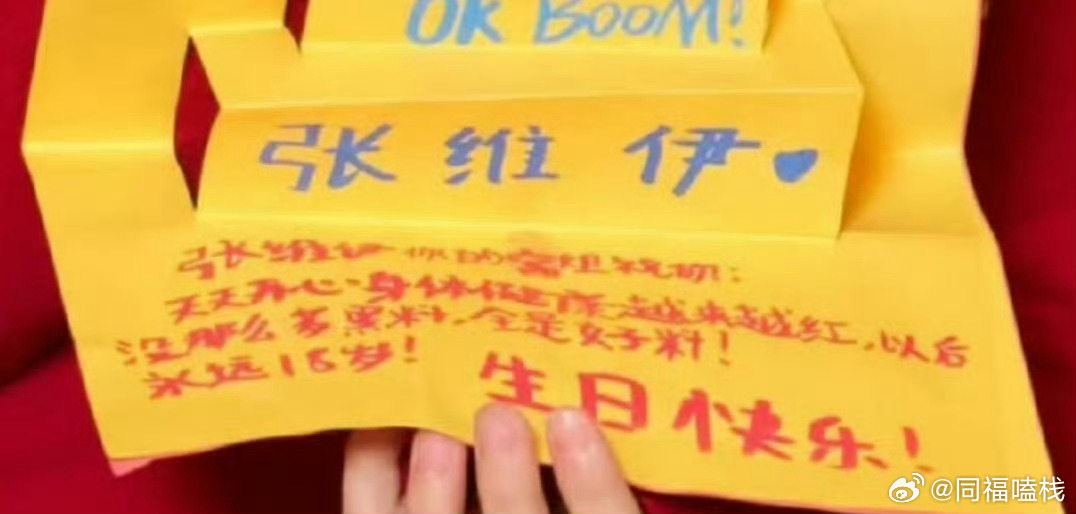 OK BOOM!
张维伊
张维伊你的室姐祝你：
天天开心身体健康越来越红，以后
没那么多黑料，全是好料！
永远18岁！
生日快乐！
@同福嗑栈